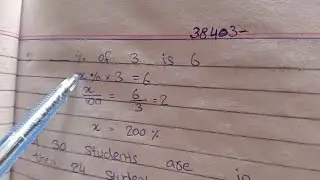 38403-
% of 3 is 6
x% × 3 = 6
x/100 = 6/3 = 2
x = 200%
30 students are in
24